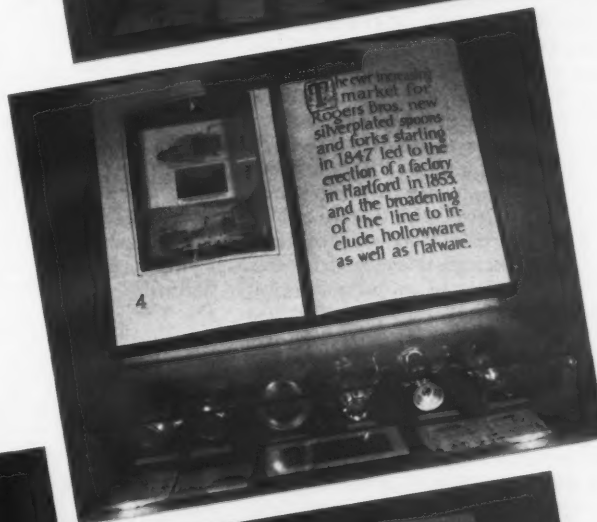 The ever increasing
market for
Rogers Bros. new
silverplated spoons
and forks starting
in 1847 led to the
erection of a factory
in Hartford in 1853
and the broadening
of the line to in-
clude hollowware
as well as flatware.
4